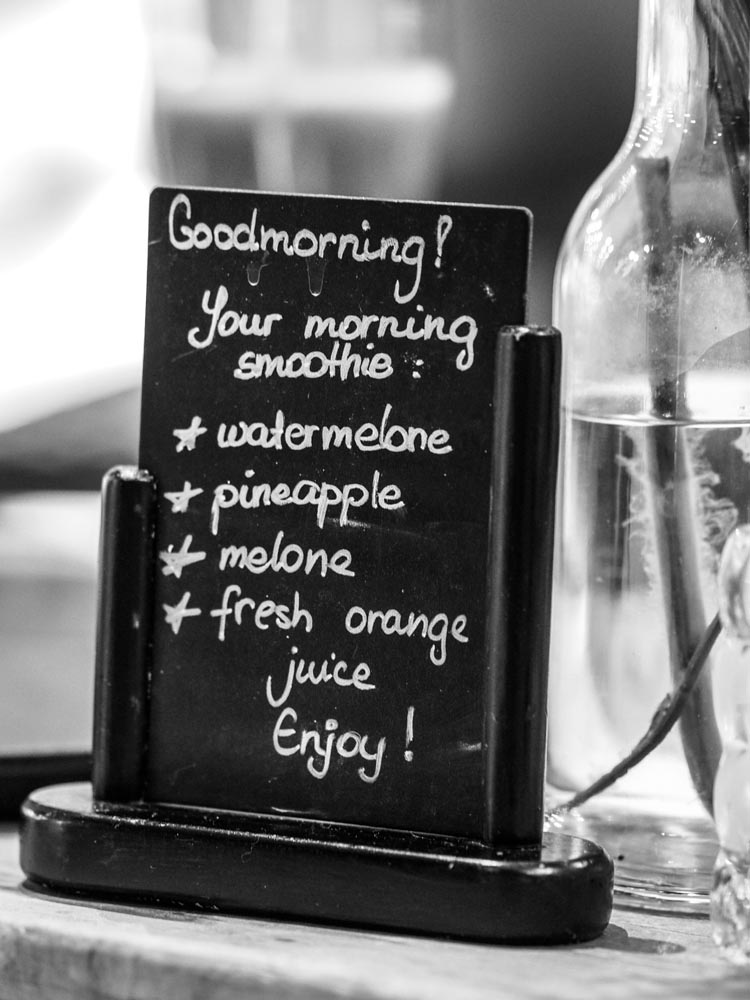 Goodmorning!
Your morning
smoothie:
* watermelone
* pineapple
* melone
* fresh orange
juice
Enjoy!